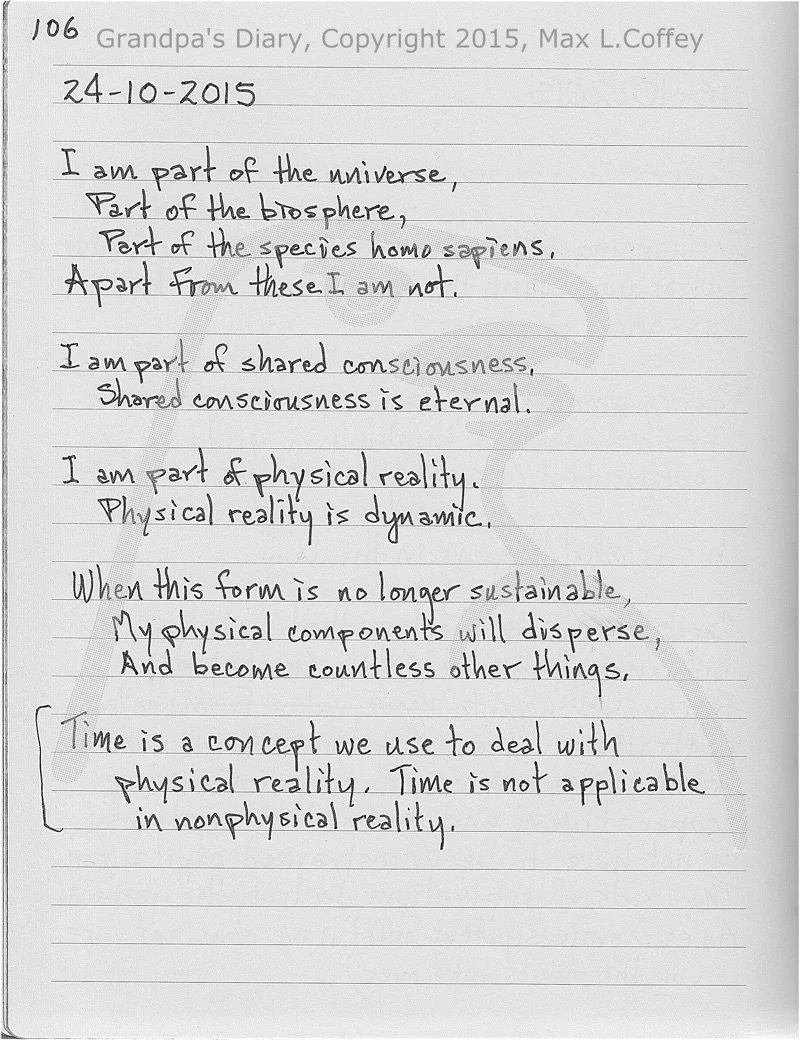 106
Grandpa's Diary, Copyright 2015, Max L.Coffey
24-10-2015
I am part of the universe,
Part of the biosphere,
Part of the species homo sapiens.
Apart from these I am not.
I am part of shared consciousness.
Shared consciousness is eternal.
I am part of physical reality.
Physical reality is dynamic.
When this form is no longer sustainable,
My physical components will disperse,
And become countless other things.
Time is a concept we use to deal with
physical reality. Time is not applicable
in nonphysical reality.